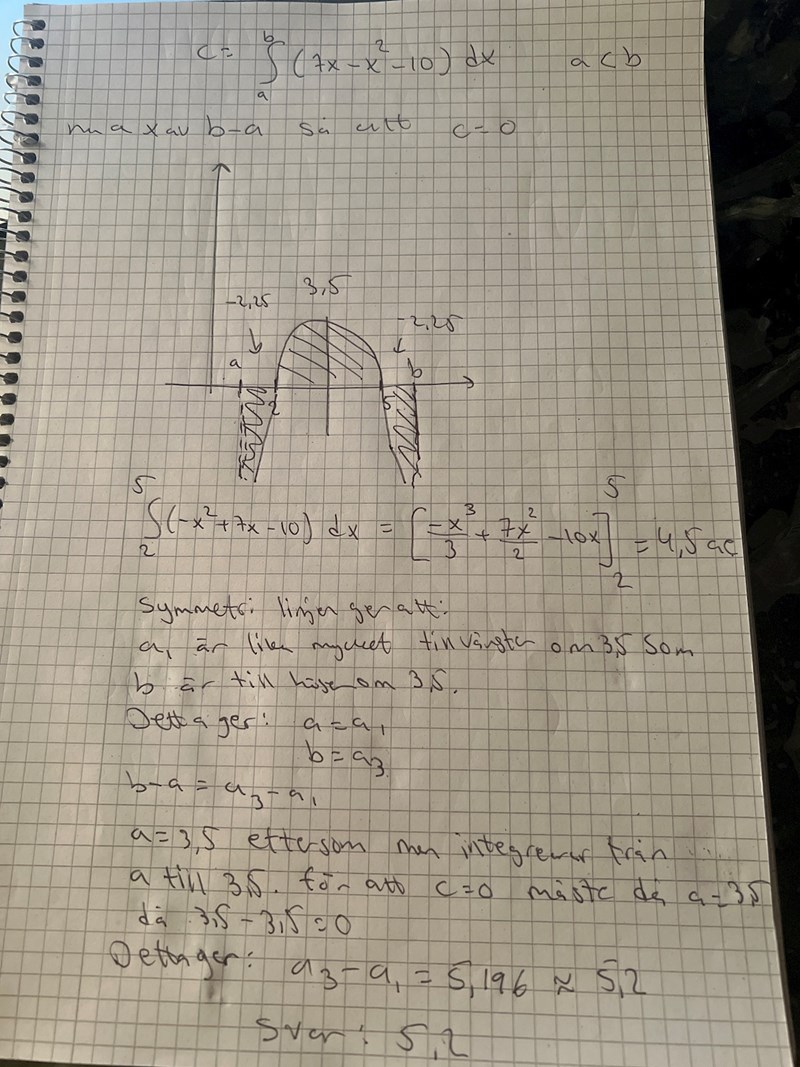 c = ∫_a^b (7x - x² - 10) dx    a < b
max av b-a så att c=0
3,5
-2,25
-2,25
a
b
2
5
∫_2^5 (-x² + 7x - 10) dx = [-x³/3 + 7x²/2 - 10x]_2^5 = 4,5 ae
Symmetri linjen ger att:
a₁ är lika mycket till vänster om 3,5 som
b är till höger om 3,5.
Detta ger: a = a₁
b = a₃
b-a = a₃-a₁
a = 3,5 eftersom man integrerar från
a till 3,5. för att c=0 måste då a=3,5
då 3,5-3,5=0
Detta ger: a₃-a₁ = 5,196 ≈ 5,2
Svar: 5,2